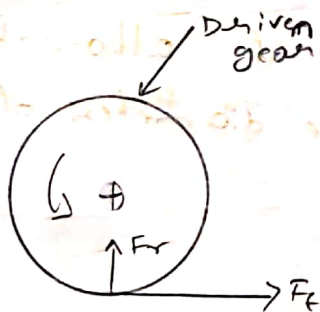 Driven
gear
Fr
Ft